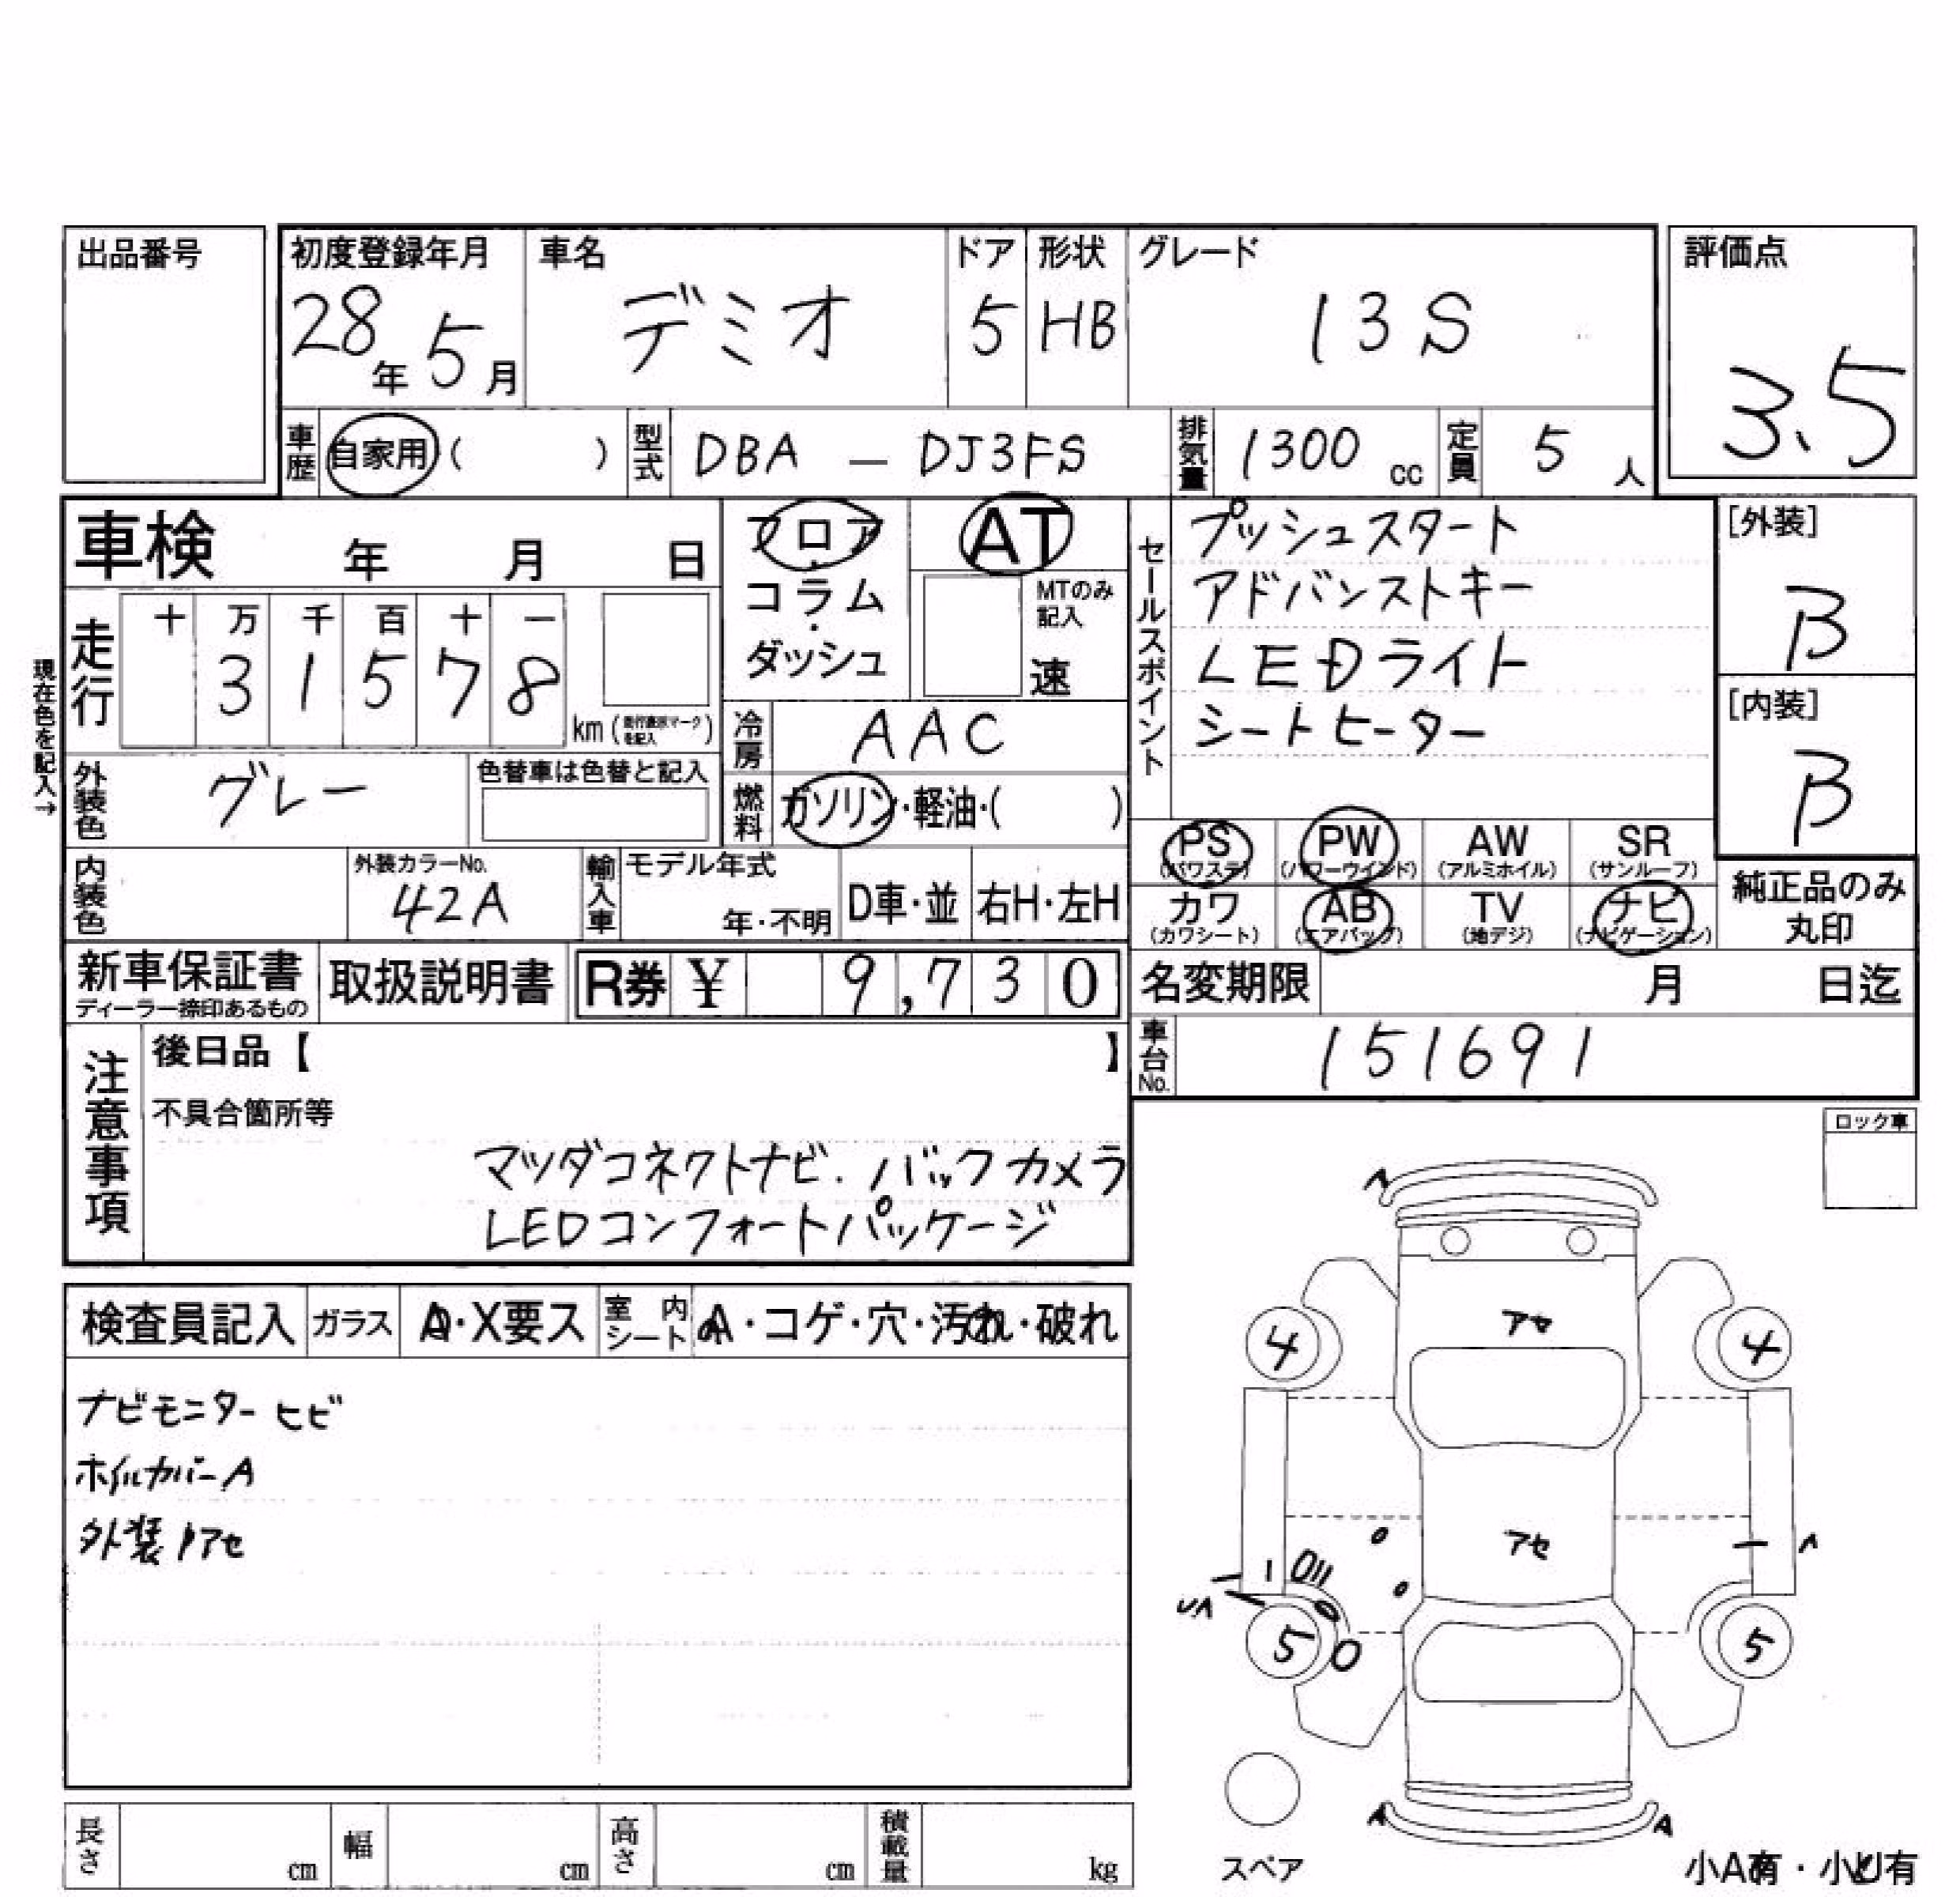 出品番号
初度登録年月 車名 ドア 形状 グレード 評価点
28年5月 デミオ 5 HB 13S 3.5
車歴 自家用( ) 型式 DBA — DJ3FS 排気量 1300 cc 定員 5 人
車検 年 月 日
フロア・コラム・ダッシュ
AT
MTのみ記入
速
セールスポイント
プッシュスタート
アドバンストキー
LEDライト
シートヒーター
[外装]
B
[内装]
B
現在色を記入→
走行 十 万 千 百 十 一
3 1 5 7 8
km(走行表示マークを記入)
冷房 AAC
外装色 グレー 色替車は色替と記入
燃料 ガソリン・軽油・( )
PS (パワステ) PW (パワーウインド) AW (アルミホイル) SR (サンルーフ)
カワ (カワシート) AB (エアバッグ) TV (地デジ) ナビ (ナビゲーション)
純正品のみ丸印
内装色 外装カラーNo. 42A 輸入車 モデル年式 年・不明 D車・並 右H・左H
新車保証書 ディーラー捺印あるもの 取扱説明書 R券 ¥ 9,730
名変期限 月 日迄
車台No. 151691
注意事項
後日品【 】
不具合箇所等
マツダコネクトナビ.バックカメラ
LEDコンフォートパッケージ
ロック車
検査員記入 ガラス A・X要ス 室内シート A・コゲ・穴・汚れ・破れ
ナビモニターヒビ
ホイルカバーA
外装 アセ
A
アセ
4 4
アセ
5 5
A A
スペア
小A有・小U有
長さ cm 幅 cm 高さ cm 積載量 kg